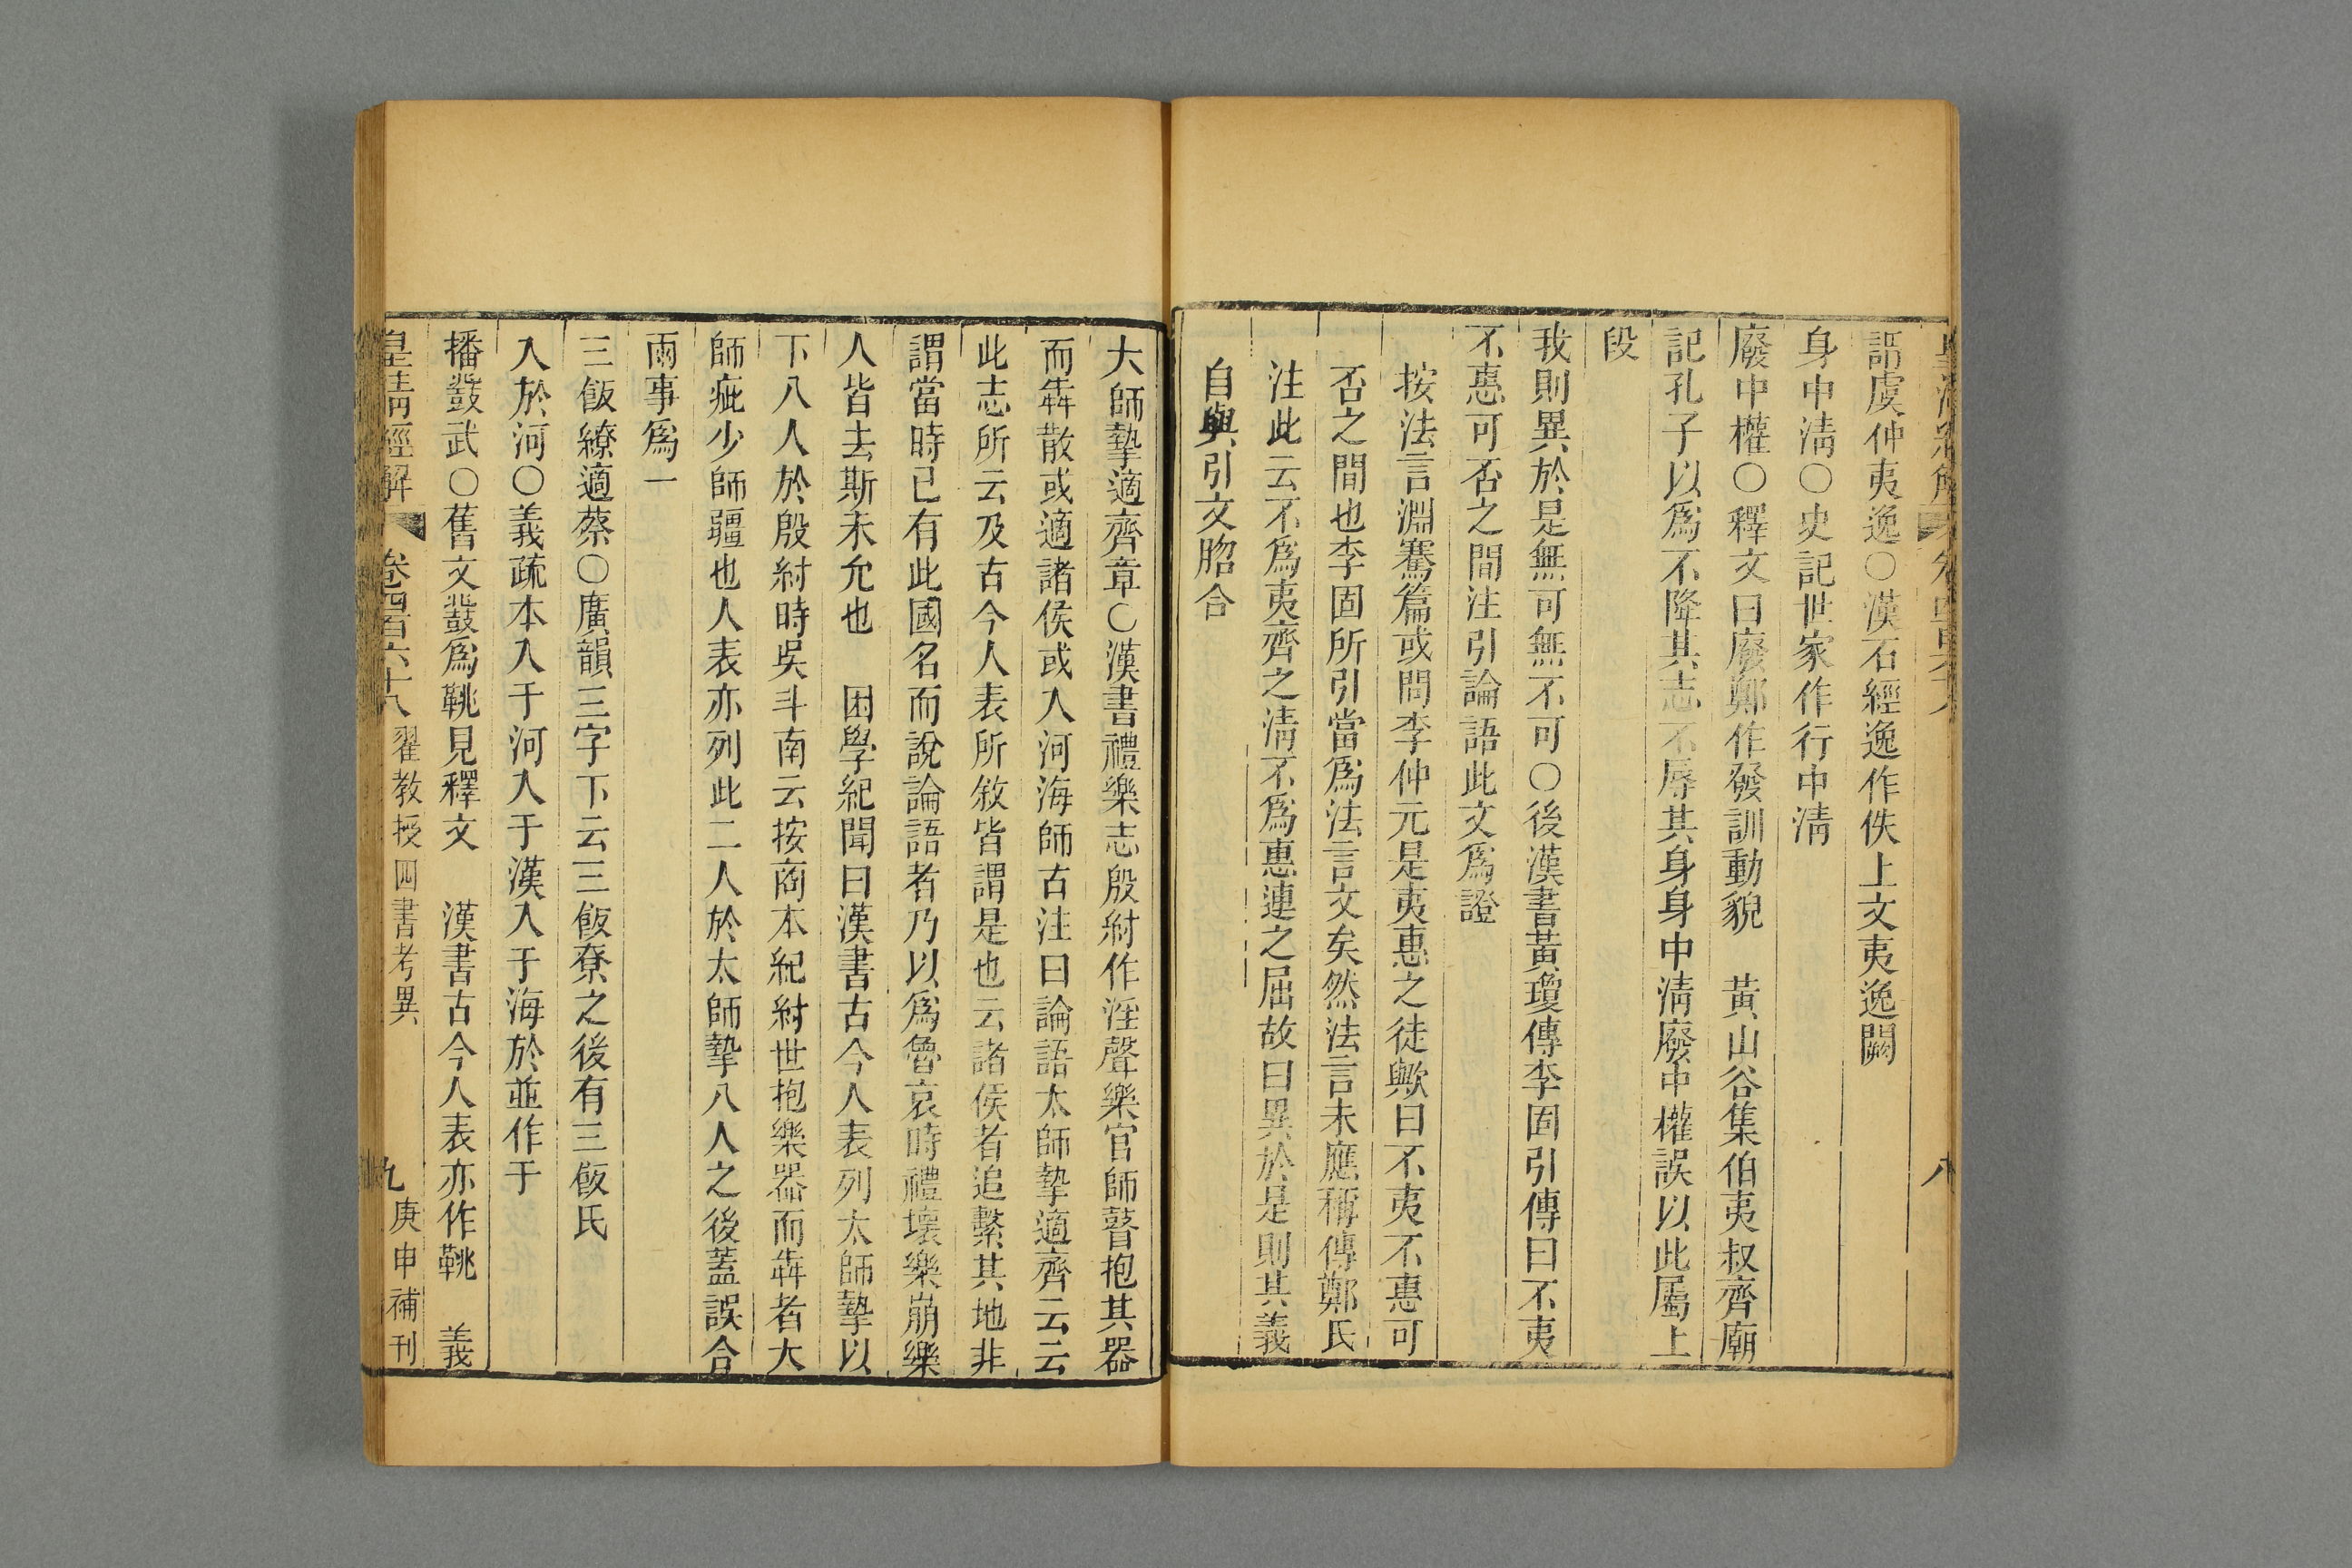 謂虞仲夷逸○漢石經逸作佚上文夷逸闕
身中清○史記世家作行中清
廢中權○釋文曰廢鄭作發訓動貌　黃山谷集伯夷叔齊廟
記孔子以爲不降其志不辱其身身中清廢中權誤以此屬上
段
我則異於是無可無不可○後漢書黃瓊傳李固引傳曰不夷
不惠可否之間注引論語此文爲證
按法言淵騫篇或問李仲元是夷惠之徒歟曰不夷不惠可
否之間也李固所引當爲法言文矣然法言未應稱傳鄭氏
注此云不爲夷齊之清不爲惠連之屈故曰異於是則其義
自與引文脗合
大師摯適齊章○漢書禮樂志殷紂作淫聲樂官師瞽抱其器
而犇散或適諸侯或入河海師古注曰論語太師摯適齊云云
此志所云及古今人表所敘皆謂是也云諸侯者追繫其地非
謂當時已有此國名而說論語者乃以爲魯哀時禮壞樂崩樂
人皆去斯未允也　困學紀聞曰漢書古今人表列太師摯以
下八人於殷紂時吳斗南云按商本紀紂世抱樂器而犇者大
師疵少師彊也人表亦列此二人於太師摯八人之後蓋誤合
兩事爲一
三飯繚適蔡○廣韻三字下云三飯尞之後有三飯氏
入於河○義疏本入于河入于漢入于海於並作于
播鼗武○舊文鼗爲鞉見釋文　漢書古今人表亦作鞉　義
皇清經解　卷四百六十八　翟教授四書考異　九　庚申補刊